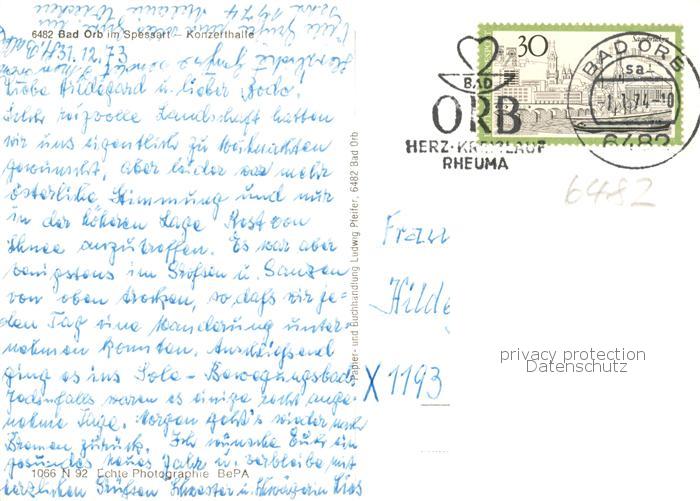 6482 Bad Orb im Spessart - Konzerthalle
31.12.73
Liebe Hildegard und lieber Bodo.
Solche reizvolle Landschaft hatten
wir uns eigentlich zu Weihnachten
gewünscht, aber leider war mehr
österliche Stimmung und nur
in der höheren Lage Rest von
Schnee anzutreffen. Es war aber
wenigstens im Großen u. Ganzen
von oben trocken, so daß wir je-
den Tag eine Wanderung unter-
nehmen konnten. Anschließend
ging es ins Sole-Bewegungsbad.
Jedenfalls waren es einige recht ange-
nehme Tage. Morgen geht's wieder nach
Bremen zurück. Ich wünsche Euch ein
gesundes neues Jahr u. verbleibe mit
herzlichen Grüßen Schwester u. Schwägerin
1066 N 92 Echte Photographie BePA
Papier- und Buchhandlung Ludwig Pfeifer, 6482 Bad Orb
30
Saarbrücken
BAD
ORB
HERZ·KREISLAUF
RHEUMA
BAD ORB
sa
-1.1.74-10
6482
6482
Frau
Hilde
X 1193
privacy protection
Datenschutz